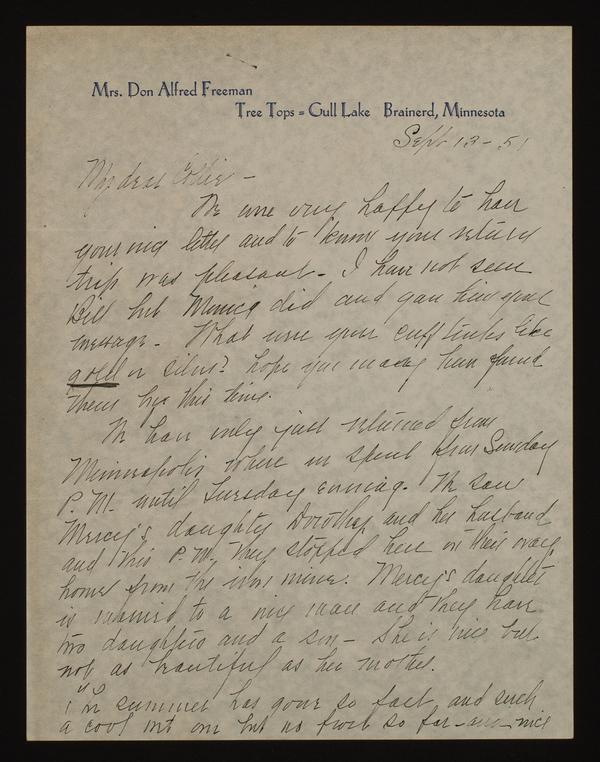 Mrs. Don Alfred Freeman
Tree Tops = Gull Lake Brainerd, Minnesota
Sept 13 - 51
My dear Collie -
We were very happy to have
your nice letter and to know your return
trip was pleasant - I have not seen
Bill but did and gave him your
message - What were your cuff links like
gold or silver? hope you may have found
them by this time.
We have only just returned from
Minneapolis where we spent from Sunday
P.M. until Tuesday evening. We saw
Mercy's daughter Dorothy and her husband
and this P.M. they stopped here on their way
home from the iron mine. Mercy's daughter
is married to a nice man and they have
two daughters and a son - She is nice but
not as beautiful as her mother.
The summer has gone so fast and such
a cool wet one but no frost so far - nice